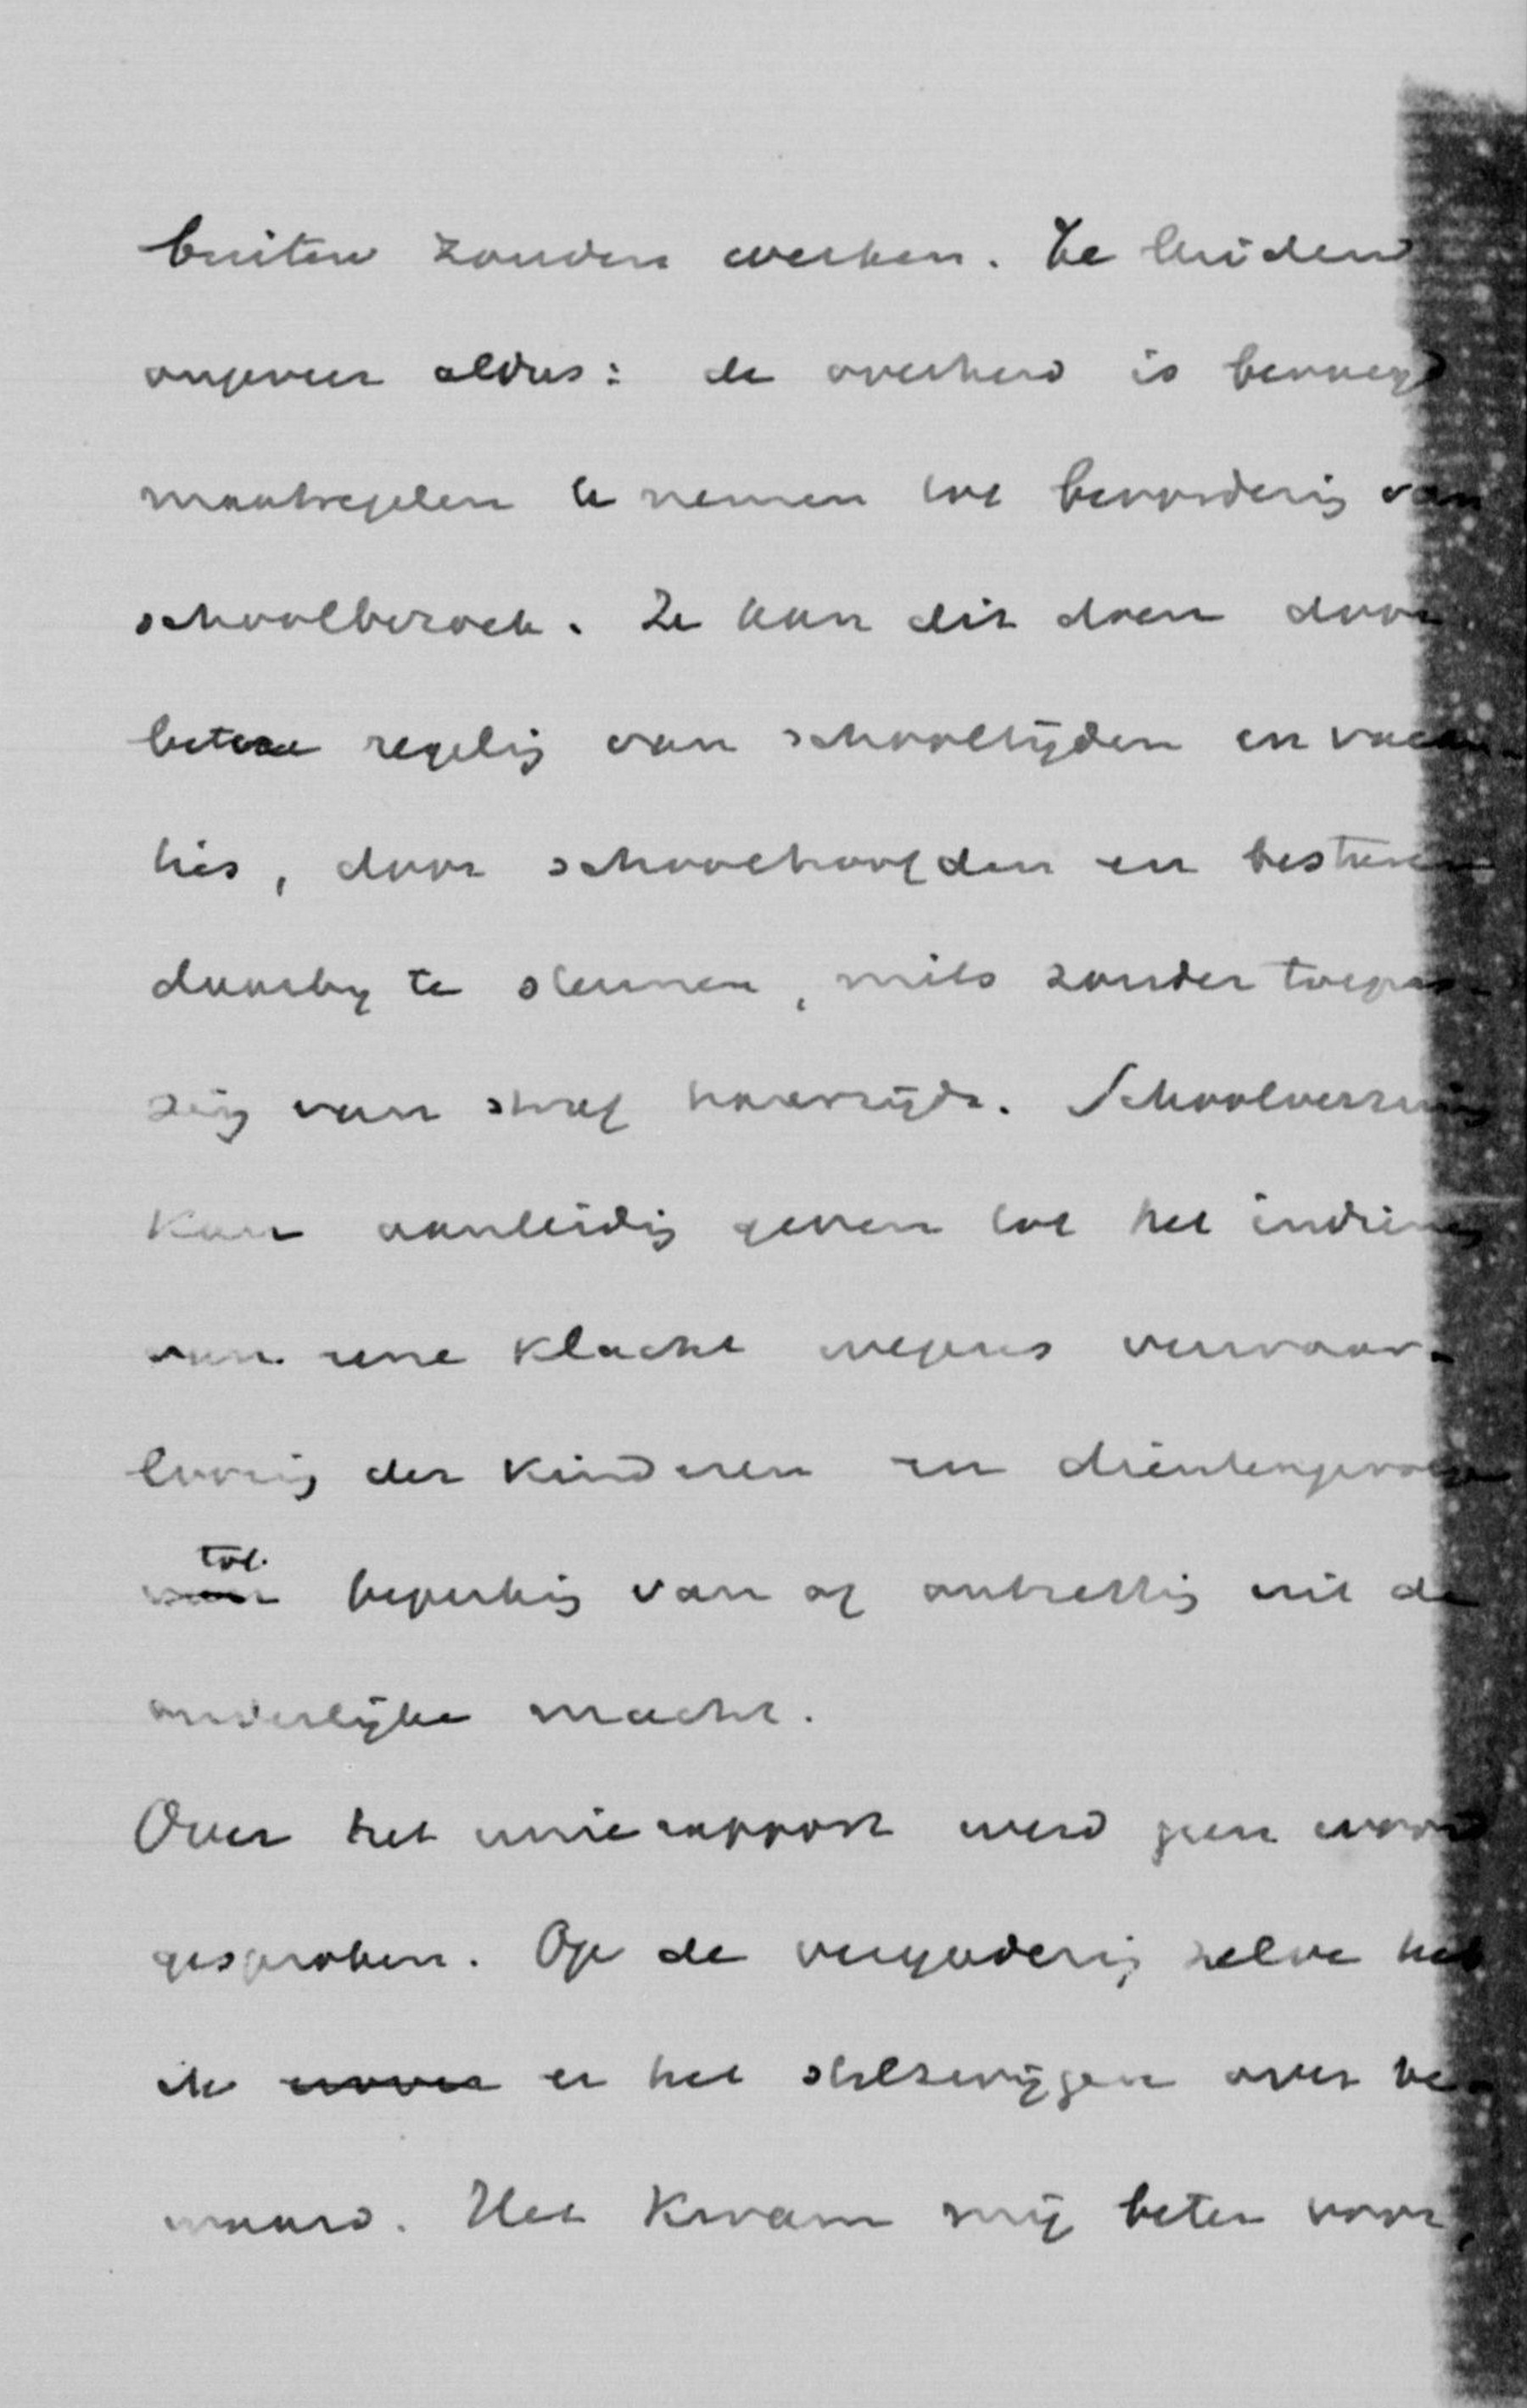 buiten zouden werken. Ze luiden
ongeveer aldus: de overheid is bevoegd
maatregelen te nemen tot bevordering van
schoolbezoek. Ze kan dit doen door
betere regeling van schooltijden en vacan-
ties, door schoolhoofden en besturen
daarby te steunen, mits zonder toepas-
sing van straf harerzijds. Schoolverzuim
kan aanleiding geven tot het indienen
van eene klacht wegens verwaar-
loozing der kinderen en dientengevolge
tot beperking van of ontzetting uit de
ouderlijke macht.
Over het unierapport werd geen woord
gesproken. Op de vergadering zelve heb
ik er het stilzwijgen over be-
waard. Het kwam mij beter voor,